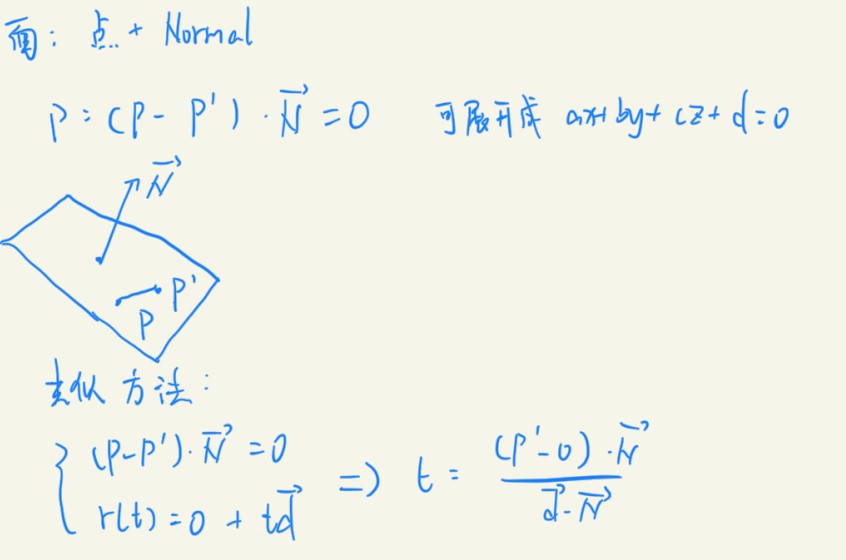 面: 点 + Normal
P: (P - P') · N⃗ = 0 可展开成 ax+by+cz+d=0
N⃗
P'
P
类似方法:
{ (P-P') · N⃗ = 0
r(t) = o + td⃗ => t = (P'-o) · N⃗ / d⃗ · N⃗